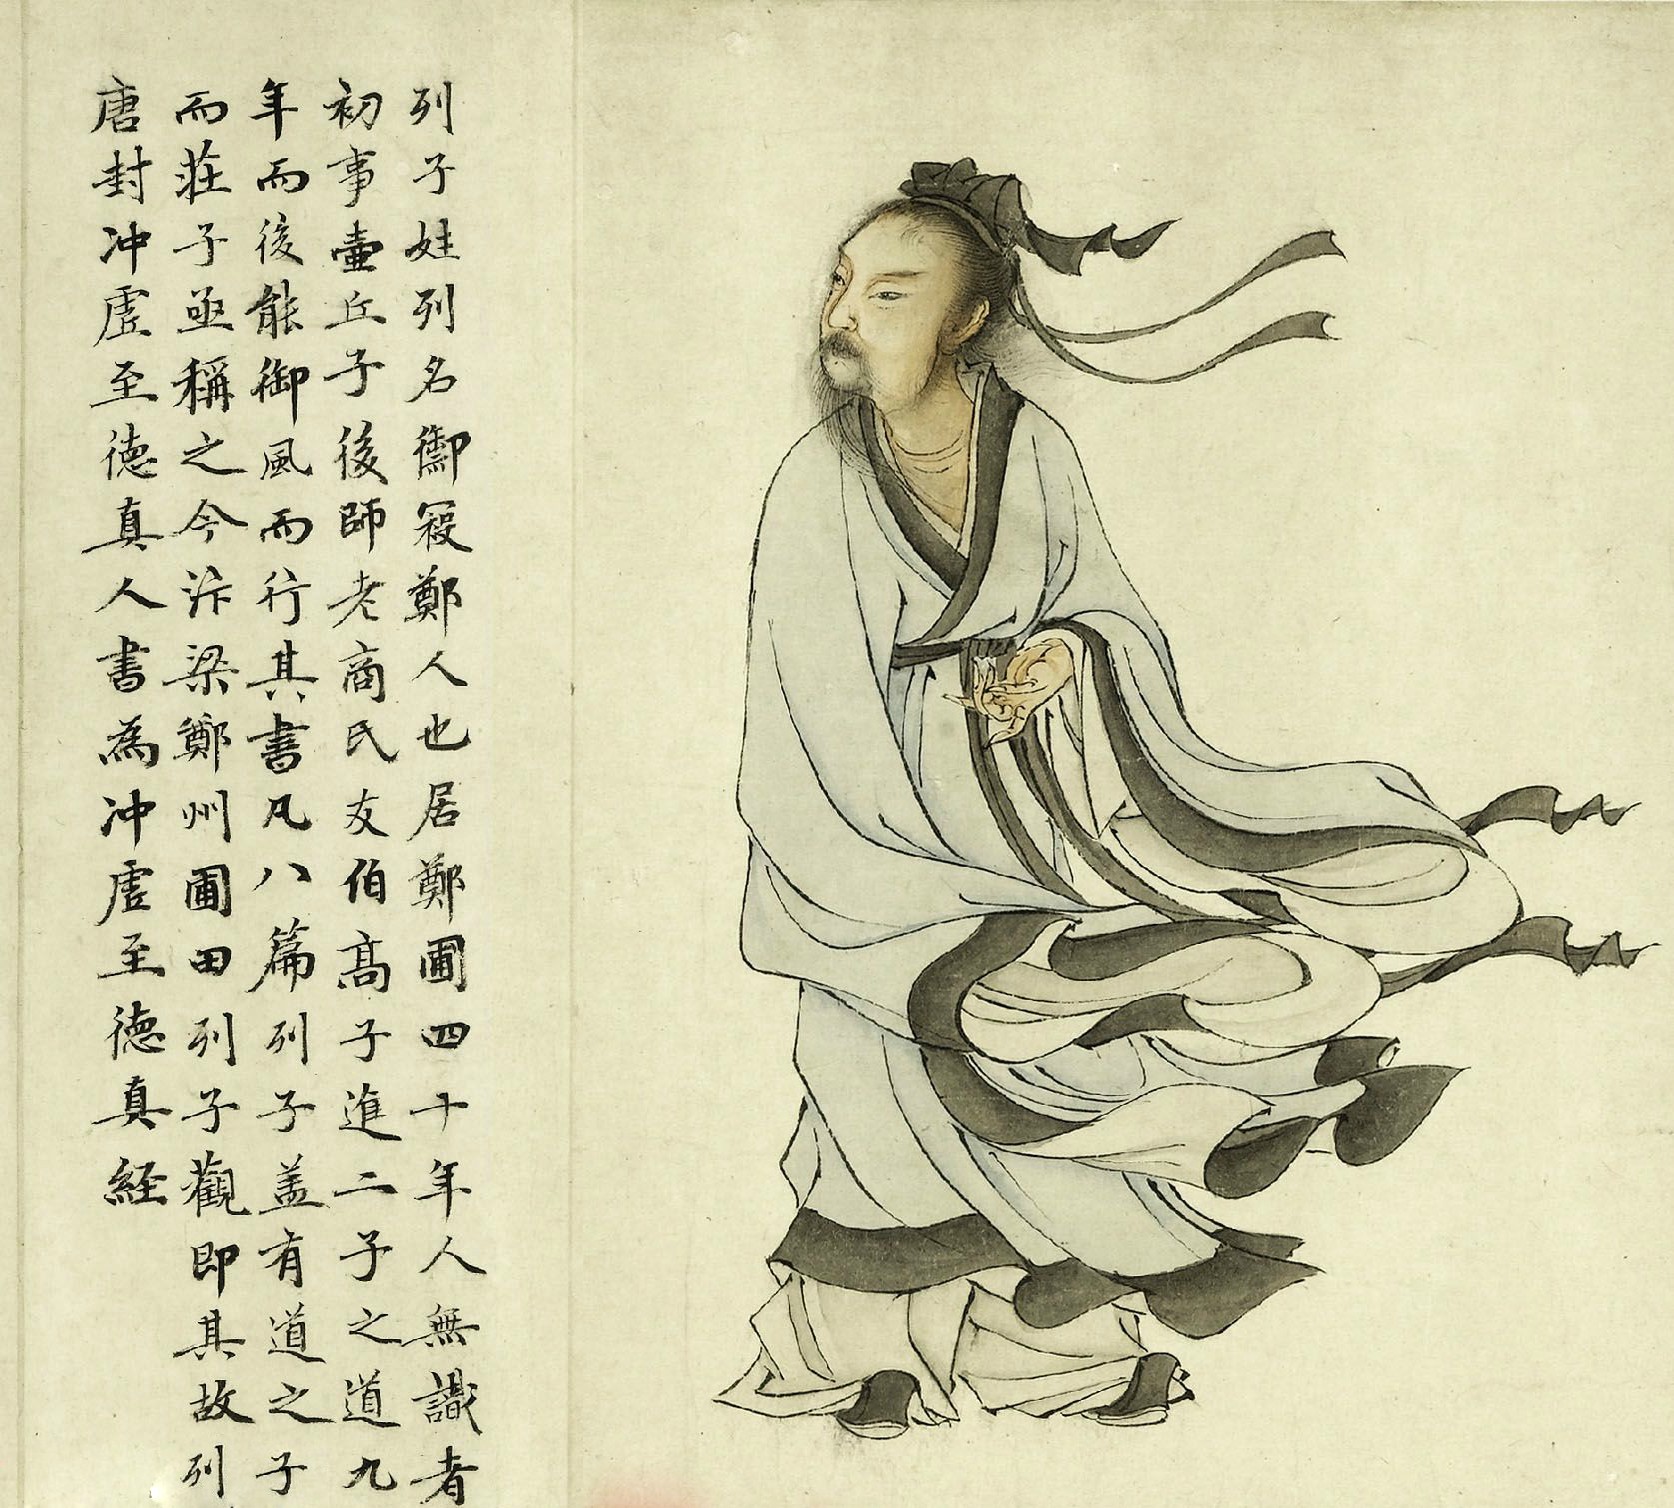 列子姓列名禦寇鄭人也居鄭圃四十年人無識者
初事壷丘子後師老商氏友伯髙子進二子之道九
年而後能御風而行其書凡八篇列子盖有道之子
而荘子亟稱之今汴梁鄭州圃田列子觀即其故列
唐封冲虚至徳真人書為冲虚至徳真経